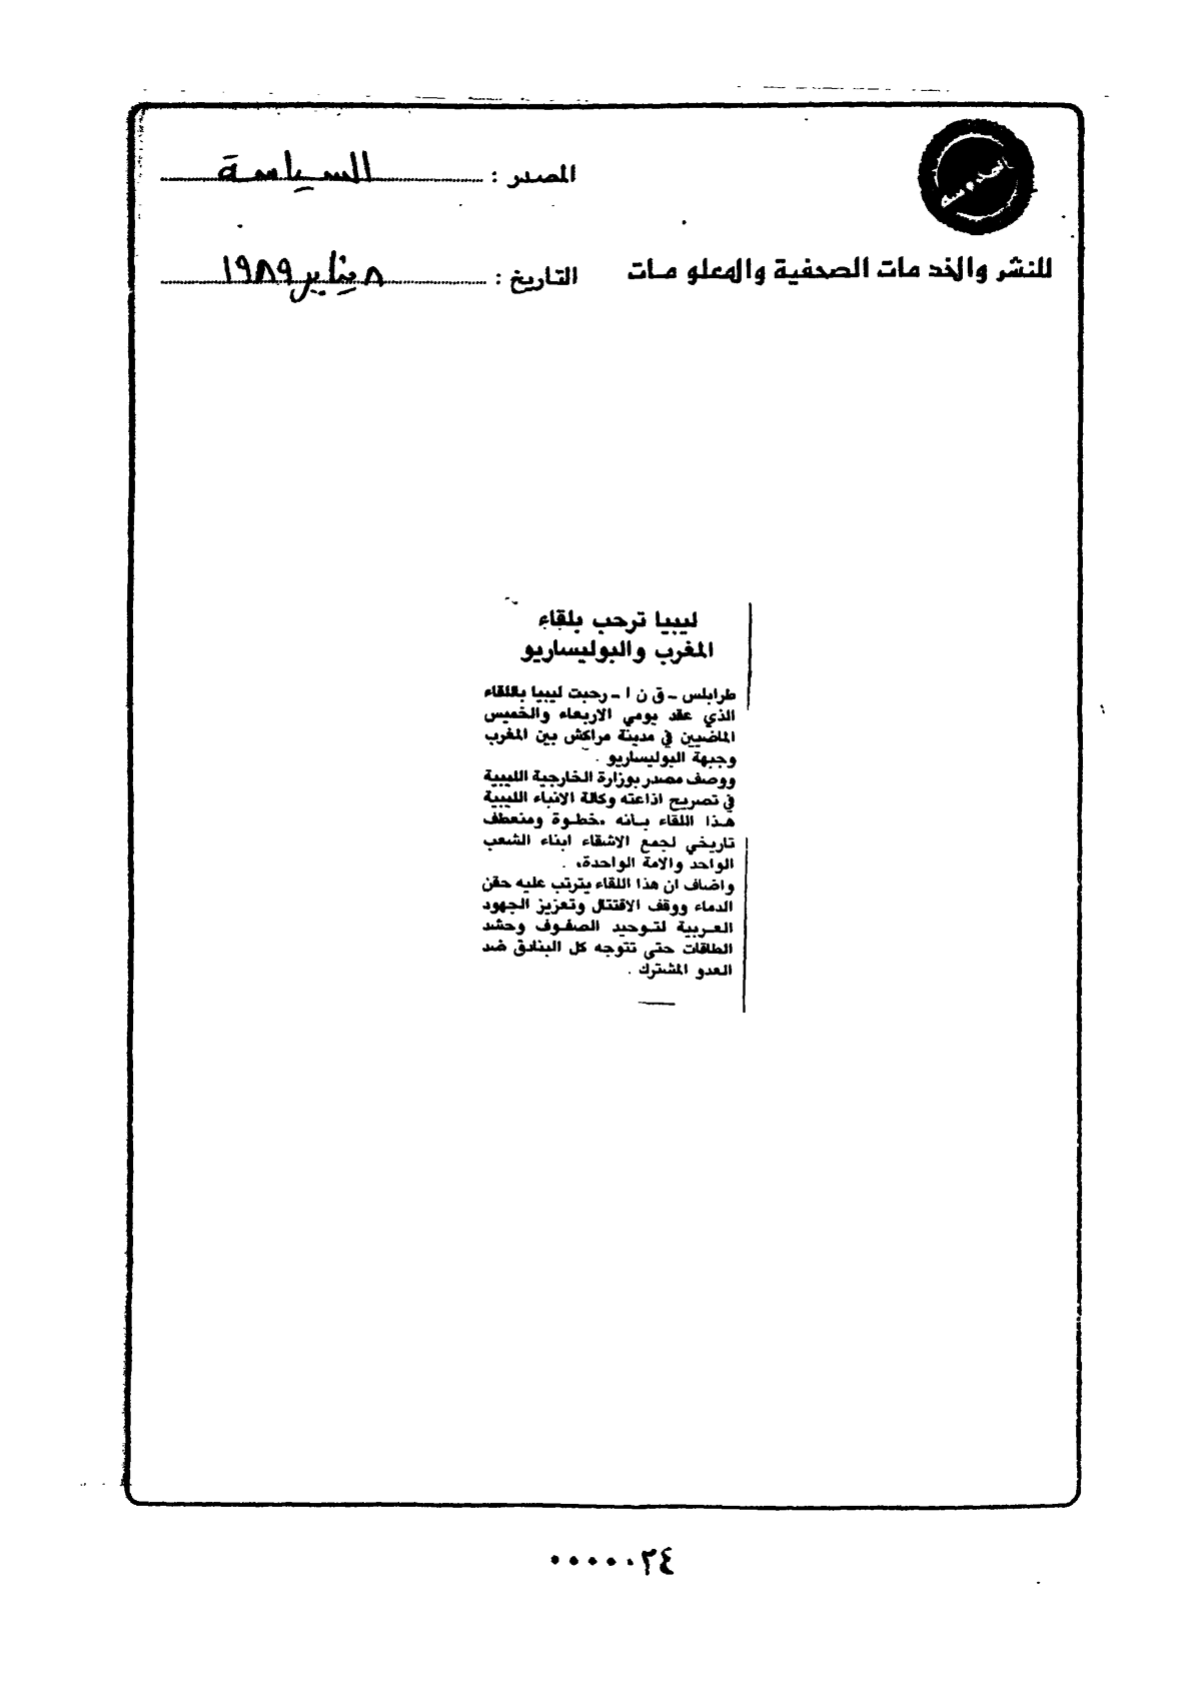 المصدر : السياسة
للنشر والخدمات الصحفية والمعلومات
التاريخ : ٨ يناير ١٩٨٩
ليبيا ترحب بلقاء
المغرب والبوليساريو
طرابلس ـ ق ن ا ـ رحبت ليبيا باللقاء
الذي عقد يومي الاربعاء والخميس
الماضيين في مدينة مراكش بين المغرب
وجبهة البوليساريو .
ووصف مصدر بوزارة الخارجية الليبية
في تصريح اذاعته وكالة الانباء الليبية
هذا اللقاء بانه «خطوة ومنعطف
تاريخي لجمع الاشقاء ابناء الشعب
الواحد والامة الواحدة» .
واضاف ان هذا اللقاء يترتب عليه حقن
الدماء ووقف الاقتتال وتعزيز الجهود
العربية لتوحيد الصفوف وحشد
الطاقات حتى تتوجه كل البنادق ضد
العدو المشترك .
٠٠٠٠٠٢٤